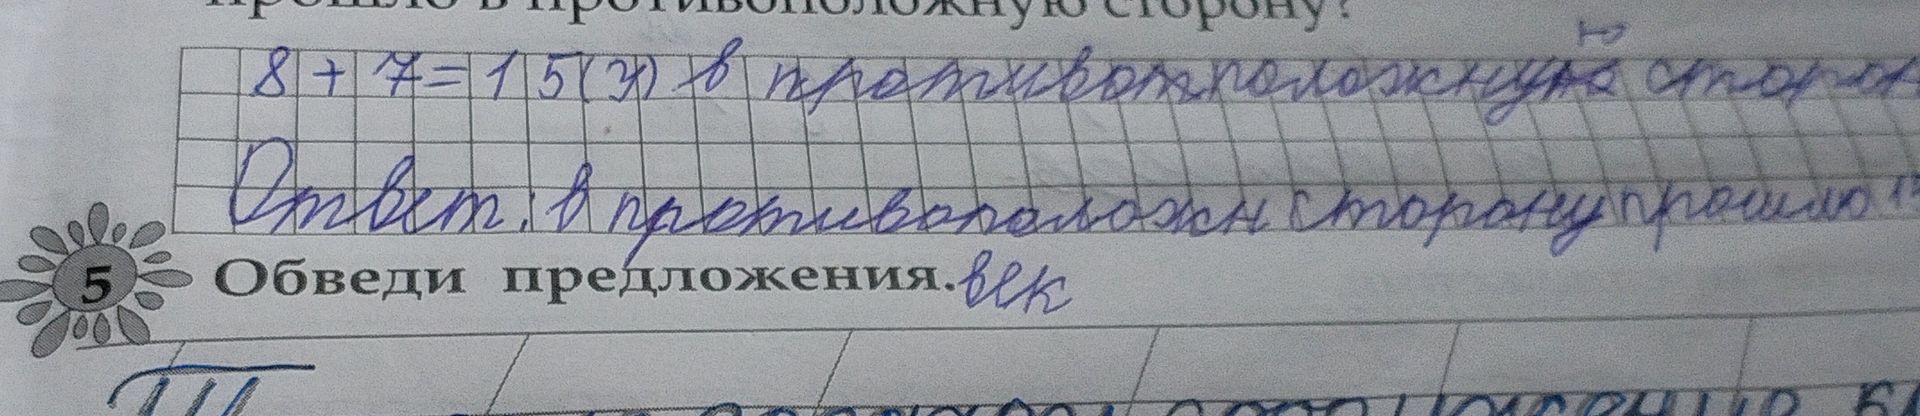 прошло в противоположную сторону?
8+7=15(ч) в противотположную сторон
Ответ: в противоположн сторону прошло 15
век
5 Обведи предложения.